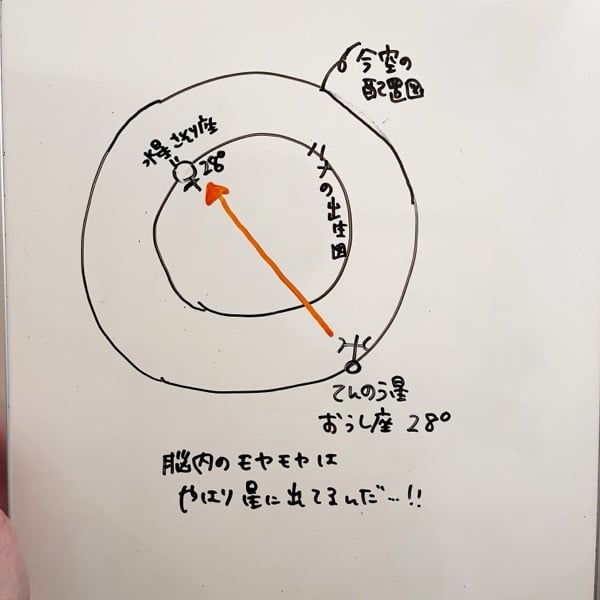 今空の
配置図
水星さそり座
28°
ハナの出生図
てんのう星
おうし座 28°
脳内のモヤモヤは
やはり星に出てるんだ…!!